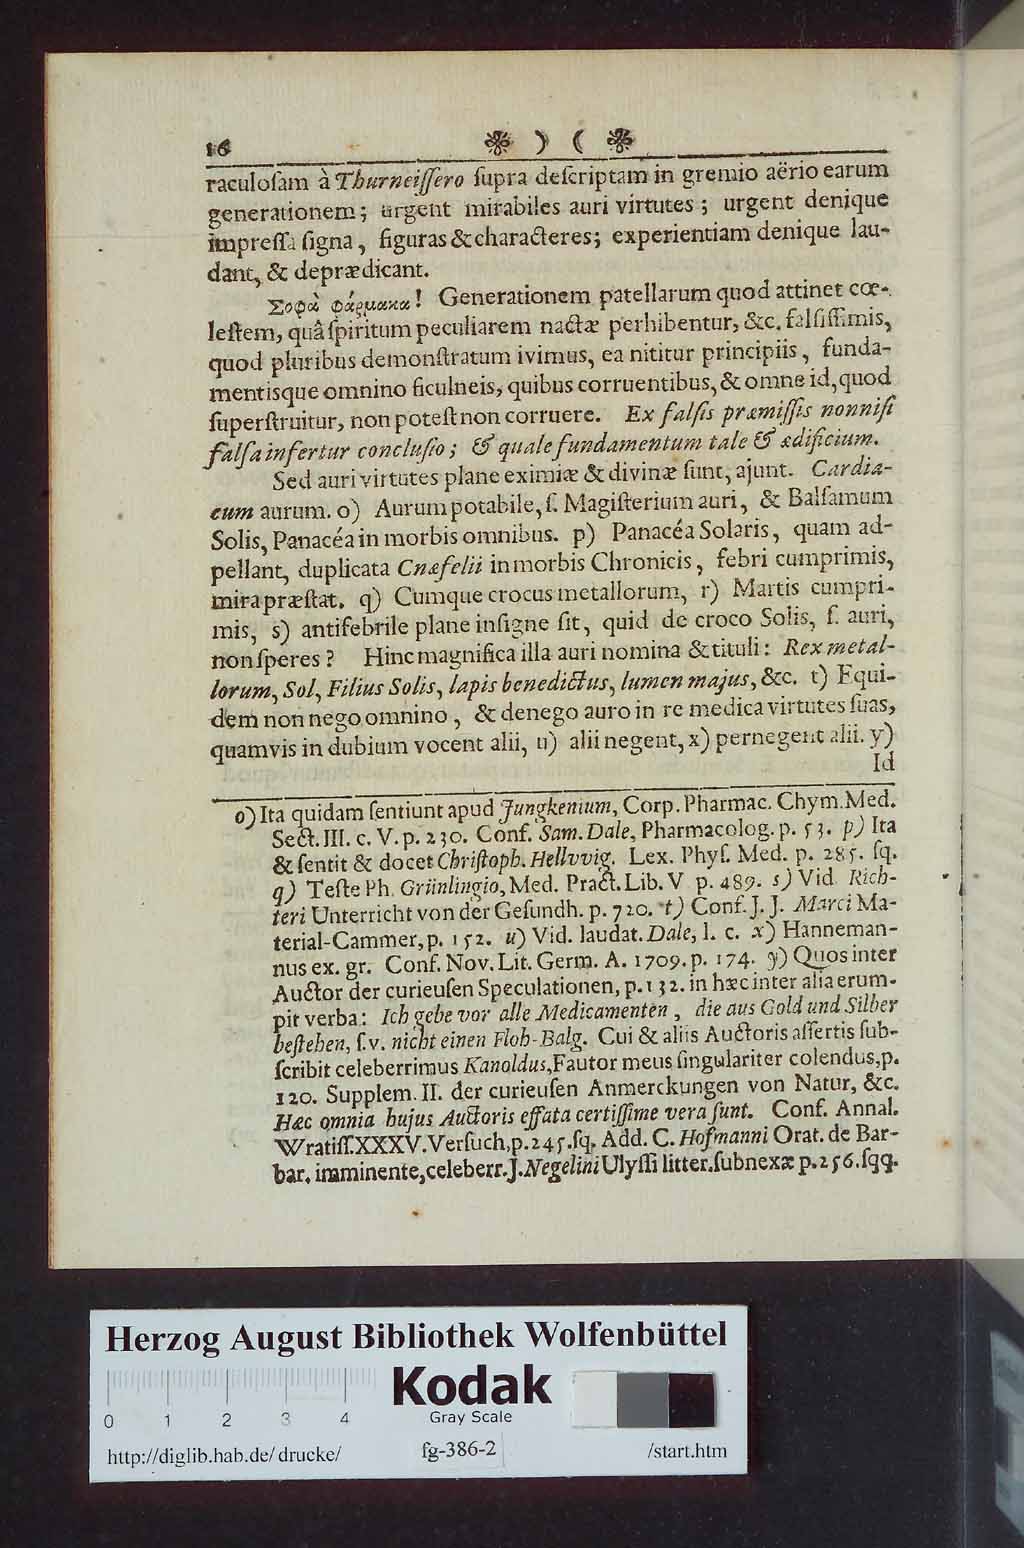 16 ❀ ) ( ❀
raculoſam à Thurneiſſero ſupra deſcriptam in gremio aërio earum
generationem; urgent mirabiles auri virtutes; urgent denique
impreſſa ſigna, figuras & characteres; experientiam denique lau-
dant, & deprædicant.
Σοφὰ φάρμακα! Generationem patellarum quod attinet cœ-
leſtem, quâ ſpiritum peculiarem nactæ perhibentur, &c. falſiſſimis,
quod pluribus demonſtratum ivimus, ea nititur principiis, funda-
mentisque omnino ficulneis, quibus corruentibus, & omne id, quod
ſuperſtruitur, non poteſt non corruere. Ex falſis præmiſſis nonniſi
falſa infertur concluſio; & quale fundamentum tale & ædificium.
Sed auri virtutes plane eximiæ & divinæ ſunt, ajunt. Cardia-
cum aurum. o) Aurum potabile, ſ. Magiſterium auri, & Balſamum
Solis, Panacéa in morbis omnibus. p) Panacéa Solaris, quam ad-
pellant, duplicata Cnæfelii in morbis Chronicis, febri cumprimis,
mira præſtat. q) Cumque crocus metallorum, r) Martis cumpri-
mis, s) antifebrile plane inſigne ſit, quid de croco Solis, ſ. auri,
non ſperes? Hinc magnifica illa auri nomina & tituli: Rex metal-
lorum, Sol, Filius Solis, lapis benedictus, lumen majus, &c. t) Equi-
dem non nego omnino, & denego auro in re medica virtutes ſuas,
quamvis in dubium vocent alii, u) alii negent, x) pernegent alii. y)
Id
o) Ita quidam ſentiunt apud Jungkenium, Corp. Pharmac. Chym. Med.
Sect. III. c. V. p. 230. Conf. Sam. Dale, Pharmacolog. p. 53. p) Ita
& ſentit & docet Chriſtoph. Hellvvig. Lex. Phyſ. Med. p. 285. ſq.
q) Teſte Ph. Grünlingio, Med. Pract. Lib. V p. 489. s) Vid. Rich-
teri Unterricht von der Geſundh. p. 720. t) Conf. J. J. Marci Ma-
terial-Cammer, p. 152. u) Vid. laudat. Dale, l. c. x) Hanneman-
nus ex. gr. Conf. Nov. Lit. Germ. A. 1709. p. 174. y) Quos inter
Auctor der curieuſen Speculationen, p. 132. in hæc inter alia erum-
pit verba: Ich gebe vor alle Medicamenten, die aus Gold und Silber
beſtehen, ſ.v. nicht einen Floh-Balg. Cui & aliis Auctoris aſſertis ſub-
ſcribit celeberrimus Kanoldus, Fautor meus ſingulariter colendus, p.
120. Supplem. II. der curieuſen Anmerckungen von Natur, &c.
Hæc omnia hujus Auctoris effata certiſſime vera ſunt. Conf. Annal.
Wratiſſ. XXXV. Verſuch, p. 245. ſq. Add. C. Hofmanni Orat. de Bar-
bar. imminente, celeberr. J. Negelini Ulyſſi litter. ſubnexæ p. 256. ſqq.
Herzog August Bibliothek Wolfenbüttel
Kodak
Gray Scale
0 1 2 3 4
http://diglib.hab.de/drucke/ fg-386-2 /start.htm